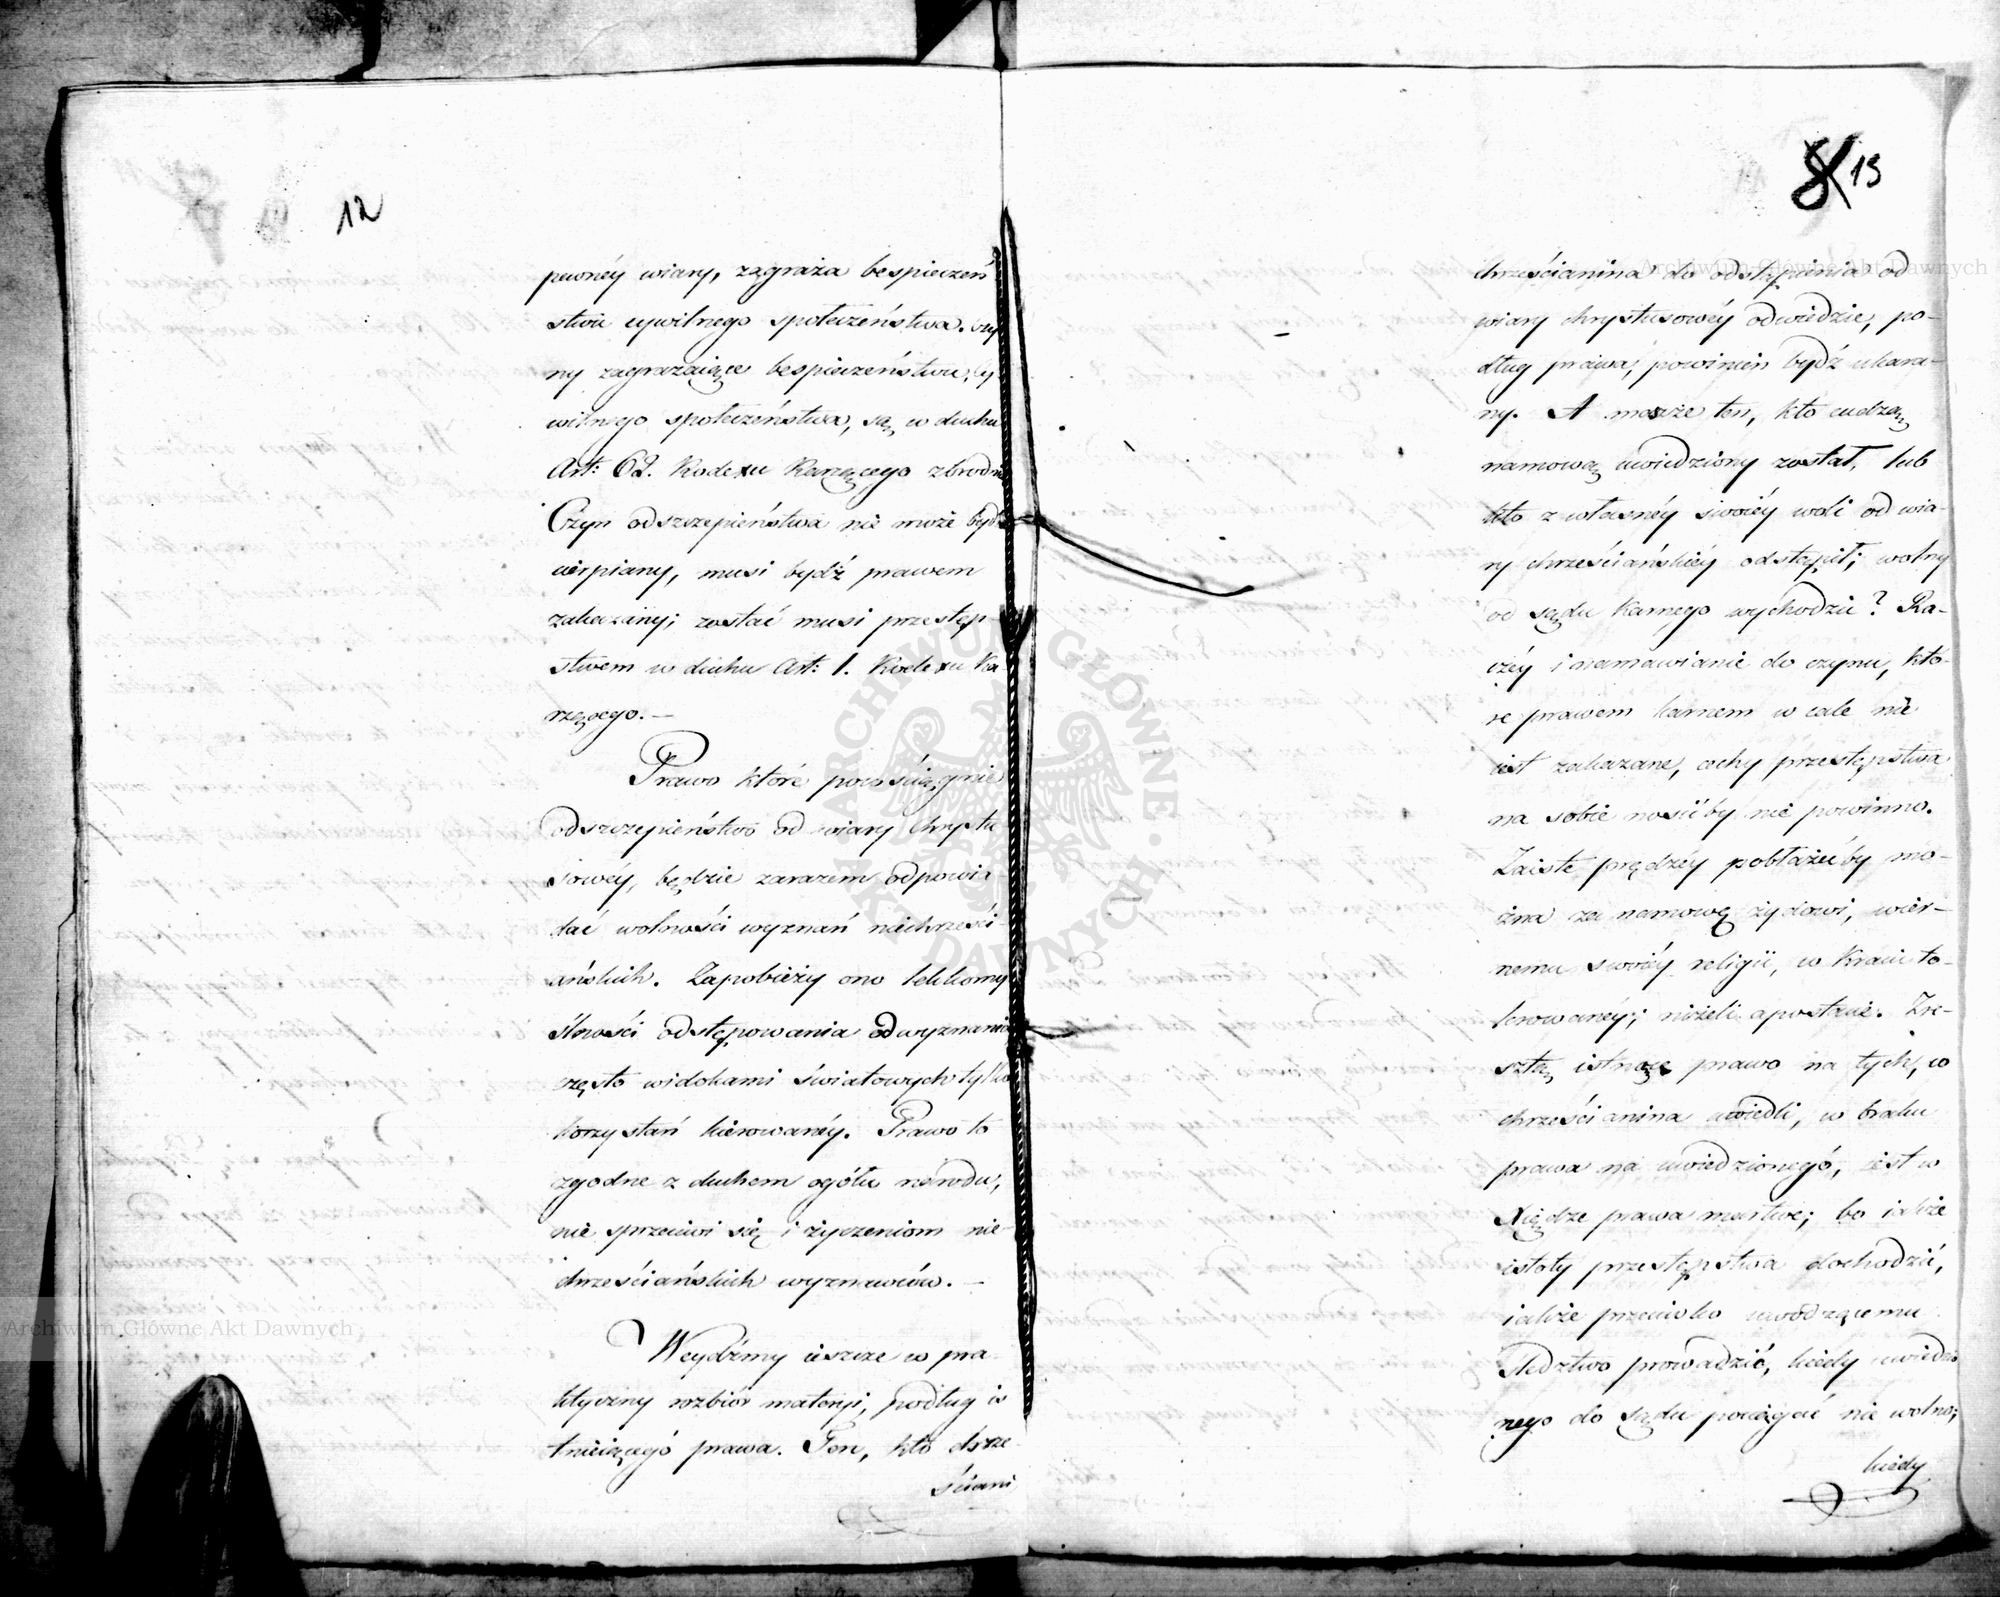 12
pewnéy wiary, zagraża bespieczeń
stwu cywilnego społeczeństwa. Czy
ny zagrażaiące bespieczeństwu, cy
wilnego społeczeństwa, są w duchu
Art: 62. Kodexu Karzącego zbrodni
Czyn odszczepieństwa nie może bydź
cierpiany, musi bydź prawem
zakazany; zostać musi przestęp-
stwem w duchu Art: 1. Kodexu Ka
rzącego. —
Prawo które powściągnie
odszczepieństwo od wiary Chrystu
sowéy, będzie zarazem odpowia-
dać wolności wyznań niechrześci-
ańskich. Zapobieży ono lekkomy
ślności odstępowania od wyznania
często widokami światowych tylko
korzystań kierowanéy. Prawo to
zgodne z duchem ogółu narodu,
nie sprzeciwi się i życzeniom nie-
chrześciańskich wyznawców. —
Weydźmy ieszcze w pra-
ktyczny rozbiór materyi, podług is
tnieiącego prawa. Ten, kto chrze-
ściani
8 13
chrześcianina do odstąpienia od
wiary chrystusowéy odwiedzie, po-
dług prawa, powinien bydź ukara-
ny. A możże ten, kto cudzą
namową uwiedziony został, lub
kto z własnéy swoiéy woli od wia-
ry chrześciańskiéy odstąpił; wolny
od sądu karnego wychodzić? Ra-
czéy i namawianie do czynu, któ-
re prawem karnem wcale nie
iest zakazane, cechy przestępstwa
na sobie nosićby nie powinno.
Zaiste prędzéy pobłażyćby mo-
żna za namowę żydowi, wier-
nemu swoiéy religii, w Kraiu to-
lerowanéy; niżeli apostacie. Zre-
sztą istnące prawo na tych, co
chrześcianina uwiedli, w braku
prawa na uwiedzionego, iest w
Xiędze prawa martwe; bo iakże
istoty przestępstwa dochodzić,
iakże przeciwko uwodzącemu
śledztwo prowadzić, kiedy uwiedzio
nego do sądu pociągać nie wolno;
kiedy
ARCHIWUM GŁÓWNE AKT DAWNYCH
Archiwum Główne Akt Dawnych
Archiwum Główne Akt Dawnych